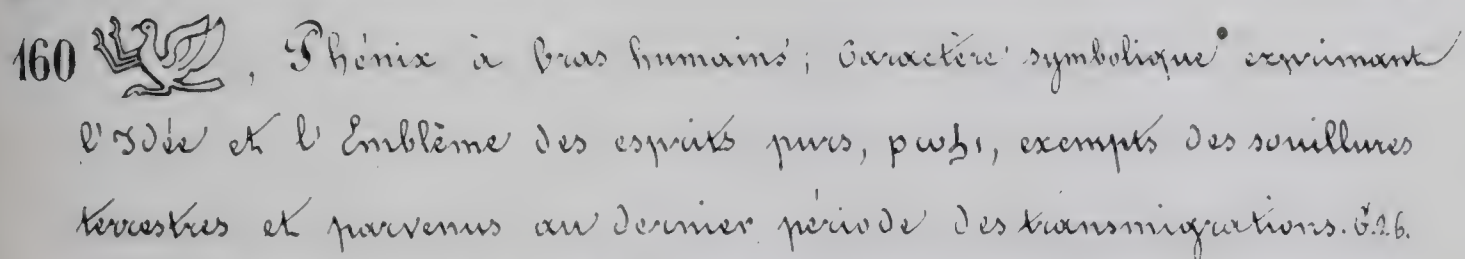 160 , Phénix à bras humains; Caractère symbolique exprimant
l'Idée et l'Emblême des esprits purs, ⲣⲱϧⲓ, exempts des souillures
terrestres et parvenus au dernier période des transmigrations. G.26.